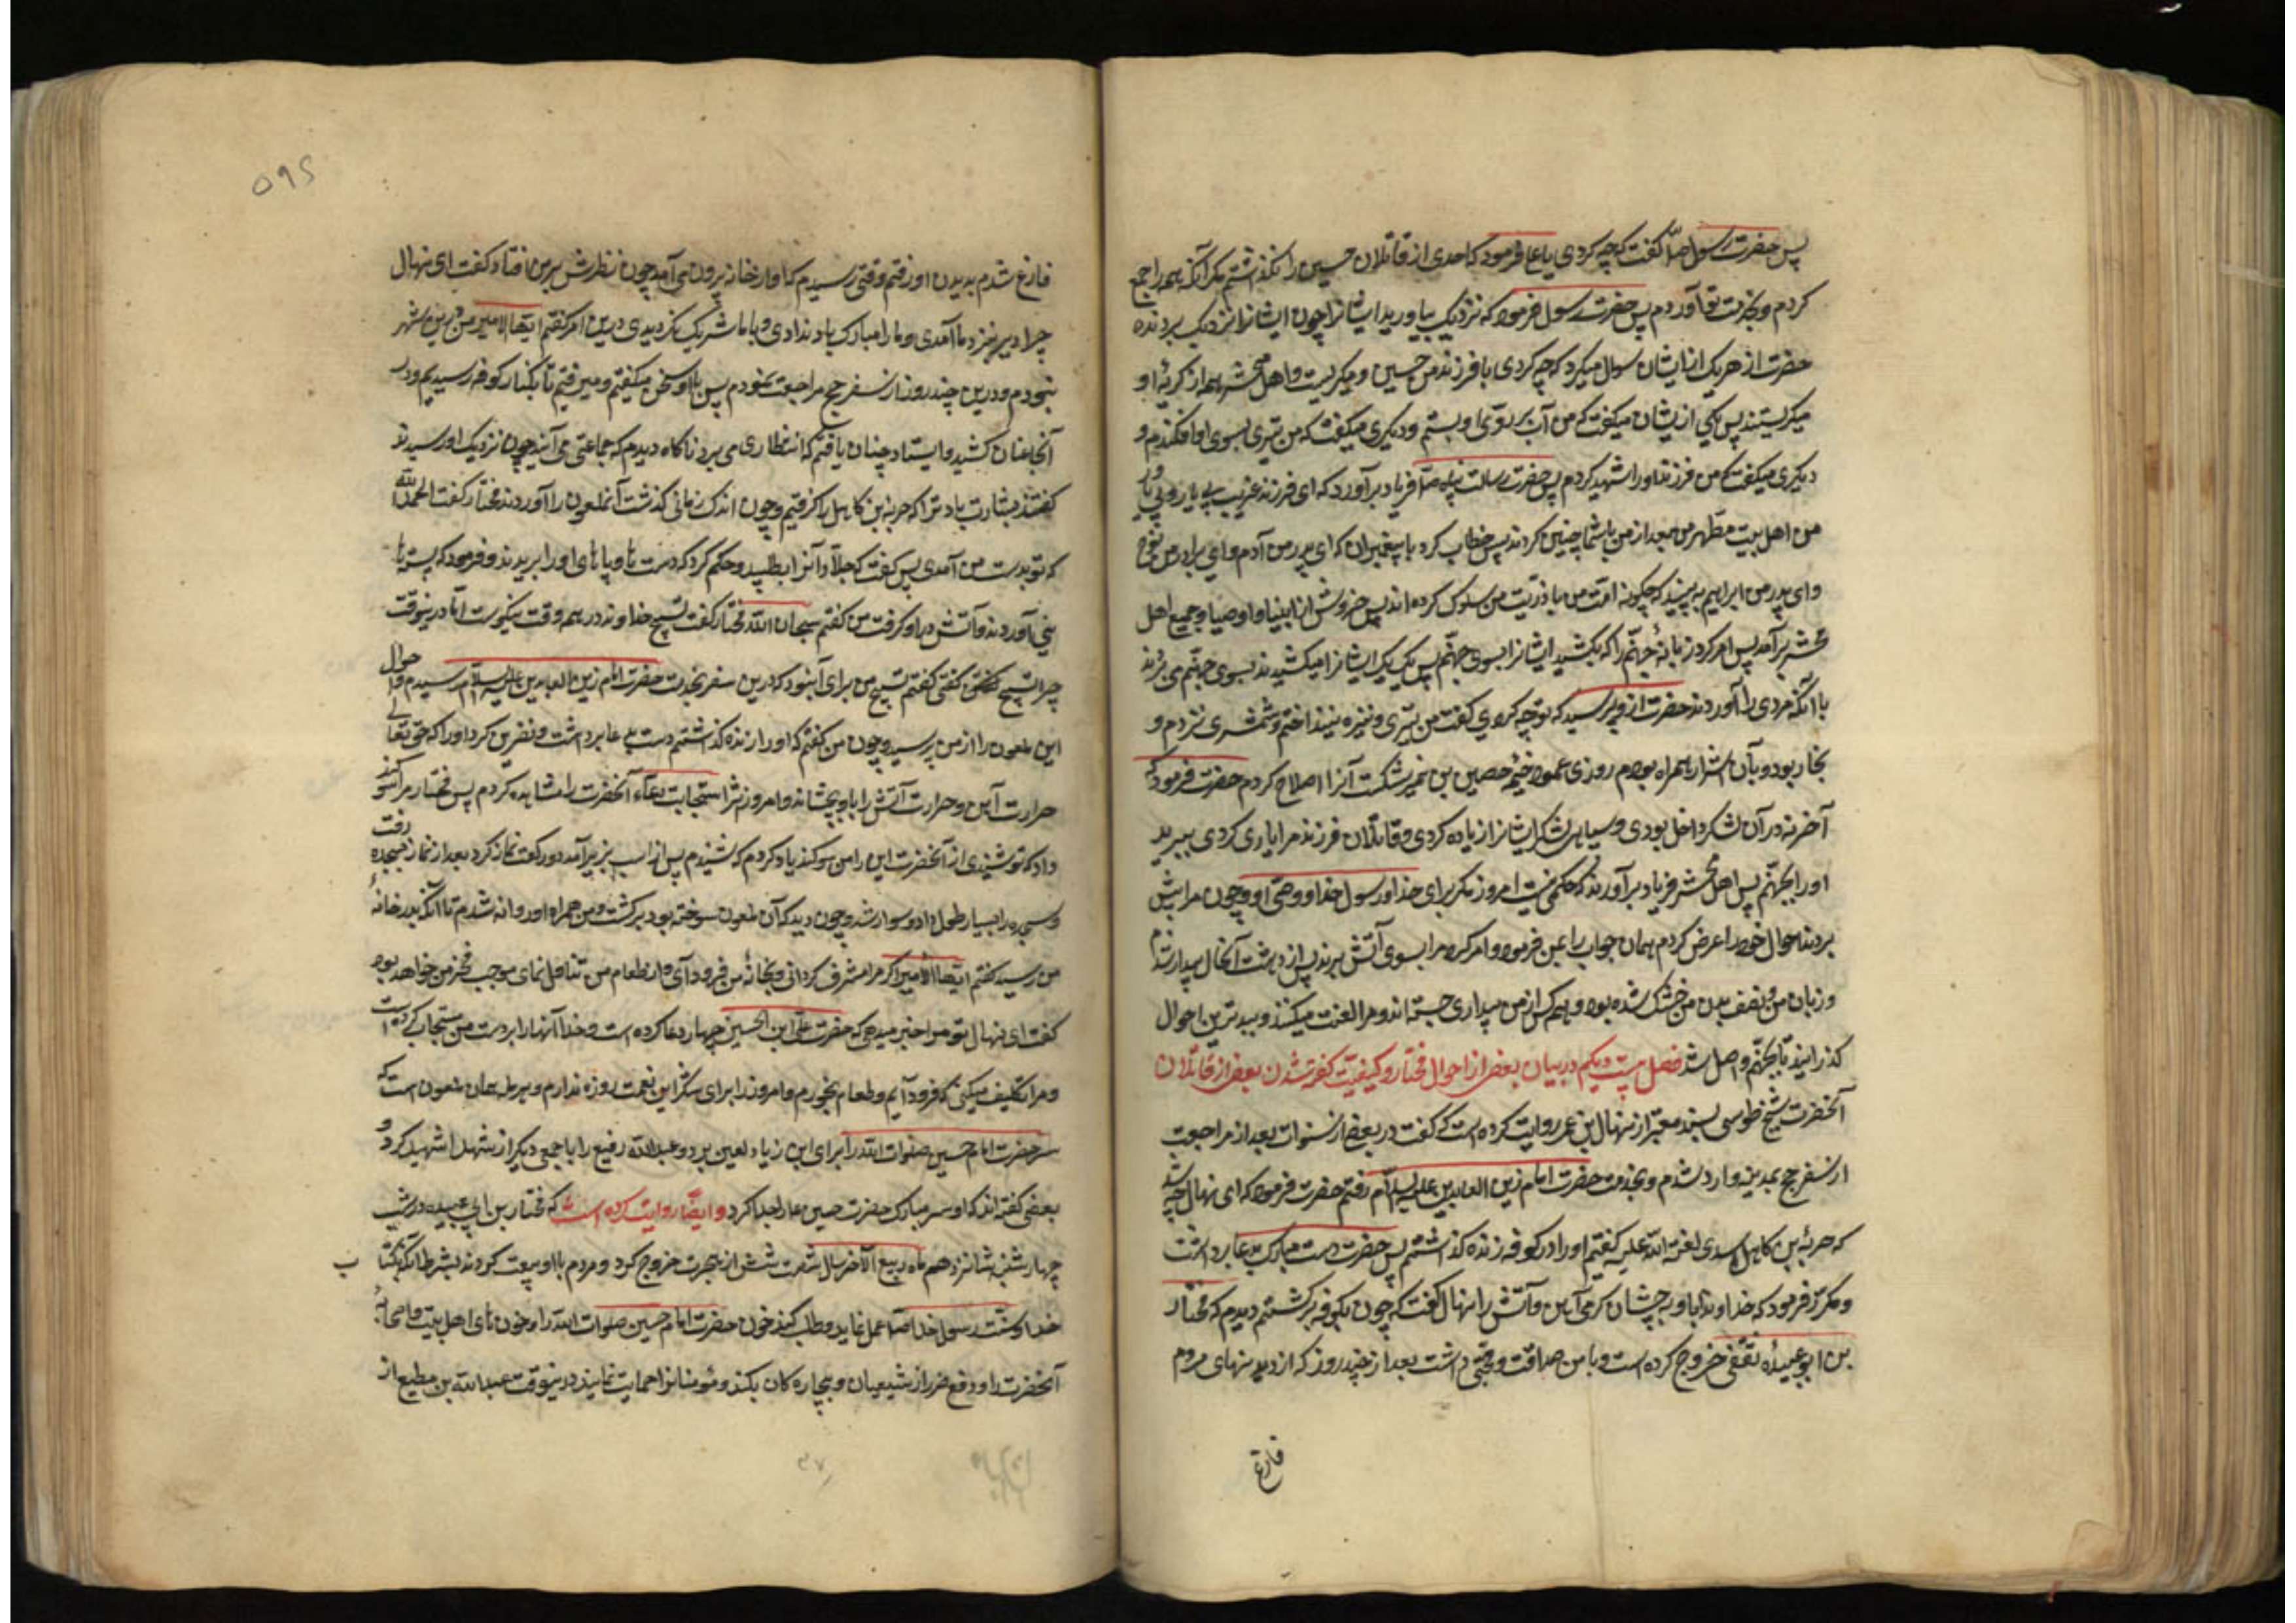 پس حضرت رسول ص گفت که چه کردی یا علی فرمود که احدی از قاتلان حسین را نگذاشتم مگر آنکه همه را جمع
کردم و بخدمت تو آوردم پس حضرت رسول فرمود که نزدیک بیاورید ایشانرا چون ایشانرا نزدیک بردند
حضرت از هر یک از ایشان سوال میکرد که چه کردی با فرزند من حسین و میگریست و اهل محشر همه از گریه او
میگریستند پس یکی از یشان میگفت که من آب بر روی او بستم و دیگری میگفت که من تیری بسوی او افکندم و
دیگری میگفت که من فرزند او را شهید کردم پس حضرت رسالت پناه ص فریاد برآورد که ای فرزند غریب بی یار
من اهل بیت مطهر من بعد از من با شما چنین کردند پس خطاب کرد با پیغمبران که ای پدر من آدم و ای برادر من نوح
و ای پدر من ابراهیم به بینید که چگونه امت من با ذریت من سلوک کرده اند پس خروش از انبیا و اوصیا و جمیع اهل
محشر برآمد پس امر کرد زبانۀ جهنم را که بکشید ایشانرا بسوی جهنم پس یک یک ایشانرا میکشیدند بسوی جهنم می بردند
تا آنکه مردی را آوردند حضرت از و پرسید که تو چه کردی گفت من تیری و نیزه نینداختم و شمشیری نزدم و
نجار بودم و با آن اشرار همراه بودم روزی عمود خیمه حصین بن نمیر شکست آنرا اصلاح کردم حضرت فرمود که
آخر نه در آن لشکر داخل بودی و سیاهی لشکر ایشانرا زیاده کردی و قاتلان فرزند مرا یاری کردی ببرید
او را بجهنم پس اهل محشر فریاد برآوردند که حکمی نیست امروز مگر برای خدا و رسول خدا و وصی او و چون مرا پیش
بردند احوال خود را عرض کردم همان جواب را بمن فرمود و امر کرد مرا بسوی آتش برند پس از دهشت آنحال بیدار شدم
و زبان من و نصف بدن من خشک شده بود و همه کس از من بیزاری جسته اند و مرا لعنت میکنند و ببدترین احوال
گذرانید تا بجهنم واصل شد فصل بیست و یکم در بیان بعضی از احوال مختار و کیفیت کفته شدن بعضی از قاتلان
آنحضرت شیخ طوسی بسند معتبر از منهال بن عمر روایت کرده است که گفت در بعضی از سنوات بعد از مراجعت
از سفر حج بمدینه وارد شدم و بخدمت حضرت امام زین العابدین علیه السلام رفتم حضرت فرمود که ای نهال چه شد
که حرمله بن کاهل اسدی لعنة الله علیه گفتم او را در کوفه زنده گذاشتم پس حضرت دست مبارک بدعا برداشت
و مکرر فرمود که خداوندا باو به چشان گرمی آهن و آتش را نهال گفت که چون بکوفه برگشتم دیدم که مختار
بن ابو عبیده ثقفی خروج کرده است و با من صداقت و محبتی داشت بعد از چند روز که از دیدنیهای مردم
فارغ
۵۹۵
فارغ شدم بدیدن او رفتم وقتی رسیدم که او از خانه بیرون می آمد چون نظرش بر من افتاد گفت ای نهال
چرا دیر نزد ما آمدی و ما را مبارک باد ندادی و با ما شریک نگردیدی درین امر گفتم ایها الامیر من درین شهر
نبودم و درین چند روز از سفر حج مراجعت نمودم پس با او سخن میگفتم و میرفتیم تا بکنار کوفه رسیدیم و در
آنجا عنان کشید و ایستاد چنان یافتم که انتظاری می برد ناگاه دیدم که جماعتی می آیند چون نزدیک او رسیدند
گفتند بشارت باد ترا که حرمله بن کاهل را گرفتیم و چون اندک زمانی گذشت آنملعون را آوردند مختار گفت الحمد لله
که تو بدست من آمدی پس گفت که جلاد آنرا بطلبید و حکم کرد که دست ها و پا های او را بریدند و فرمود که پسته ها
نی آوردند و آتش در او گرفت من گفتم سبحان الله مختار گفت تسبیح خداوند در همه وقت نیکوست اما درینوقت
چرا تسبیح گفتی گفتم تسبیح من برای آنبود که درین سفر بخدمت حضرت امام زین العابدین علیه السلام رسیدم و احوال
این ملعون را از من پرسید و چون من گفتم که او را زنده گذاشتم دست بدعا برداشت و نفرین کرد او را که حق تعالی
حرارت آهن و حرارت آتش را باو بچشاند و امروز اثر استجابت دعاء آنحضرت را مشاهده کردم پس مختار مرا سوگند
داد که تو شنیدی از آنحضرت این را من سوگند یاد کردم که شنیدم پس از اسب بزیر آمد دو رکعت نماز کرد بعد از نماز بسجده رفت
و سجده را بسیار طول داد و سوار شد و چون دید که آن ملعون سوخته بود برگشت و من همراه او روانه شدم تا آنکه بدر خانۀ
من رسید گفتم ایها الامیر اگر مرا مشرف گردانی و بخانه من فرود آی و از طعام من تناول نمای موجب فخر من خواهد بود
گفت ای نهال تو مرا خبر میدهی که حضرت علی ابن الحسین چهار دعا کرده است و خدا آنها را بر دست من مستجاب کرده است
و مرا تکلیف میکنی که فرود آیم و طعام بخورم و امروز را برای شکر این نعمت روزه ندارم و حرمله همان ملعون است که
سر حضرت امام حسین صلوات الله را برای ابن زیاد لعین برد و عبدالله رضیع را با جمعی دیگر از شهدا شهید کرد و
بعضی گفته اند که او سر مبارک حضرت حسین ع را جدا کرد و ایضا روایت کرده است که مختار بن ابی عبیده در شب
چهارشنبه شانزدهم ماه ربیع الآخر سال شصت شش از هجرت خروج کرد و مردم با او بیعت کردند بشرط آنکه بکتاب
خدا و سنت رسول خدا ص عمل نماید و طلب کند خون حضرت امام حسین صلوات الله را و خون های اهل بیت و اصحاب
آنحضرت را و دفع ضرر از شیعیان و بیچاره گان بکند و مومنانرا حمایت نمایند درینوقت عبدالله بن مطیع از